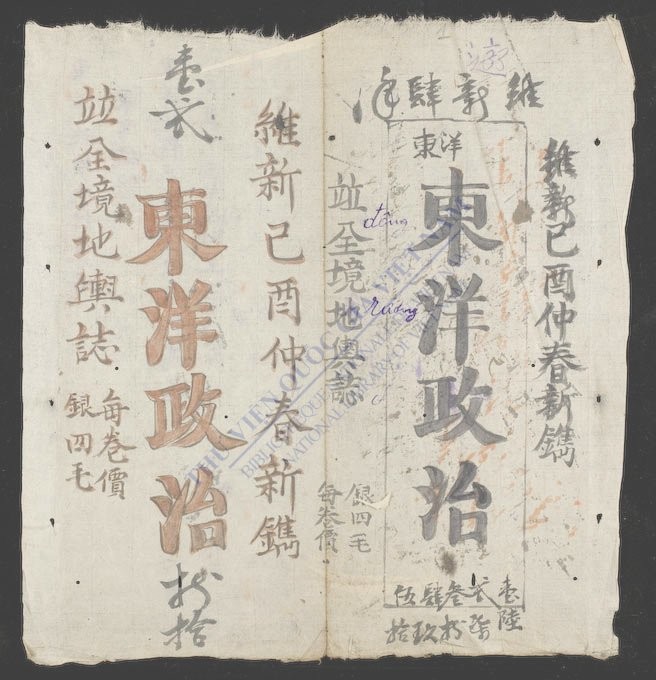 維新肆年
維新己酉仲春新鐫
東洋
東洋政治
đông
dương
並全境地輿誌
銀四毛
每卷價
壹弍叁肆伍
陸
玖拾
維新己酉仲春新鐫
壹弍
東洋政治
拾
並全境地輿誌
每卷價
銀四毛
THƯ VIỆN QUỐC GIA VIỆT NAM
NATIONAL LIBRARY OF